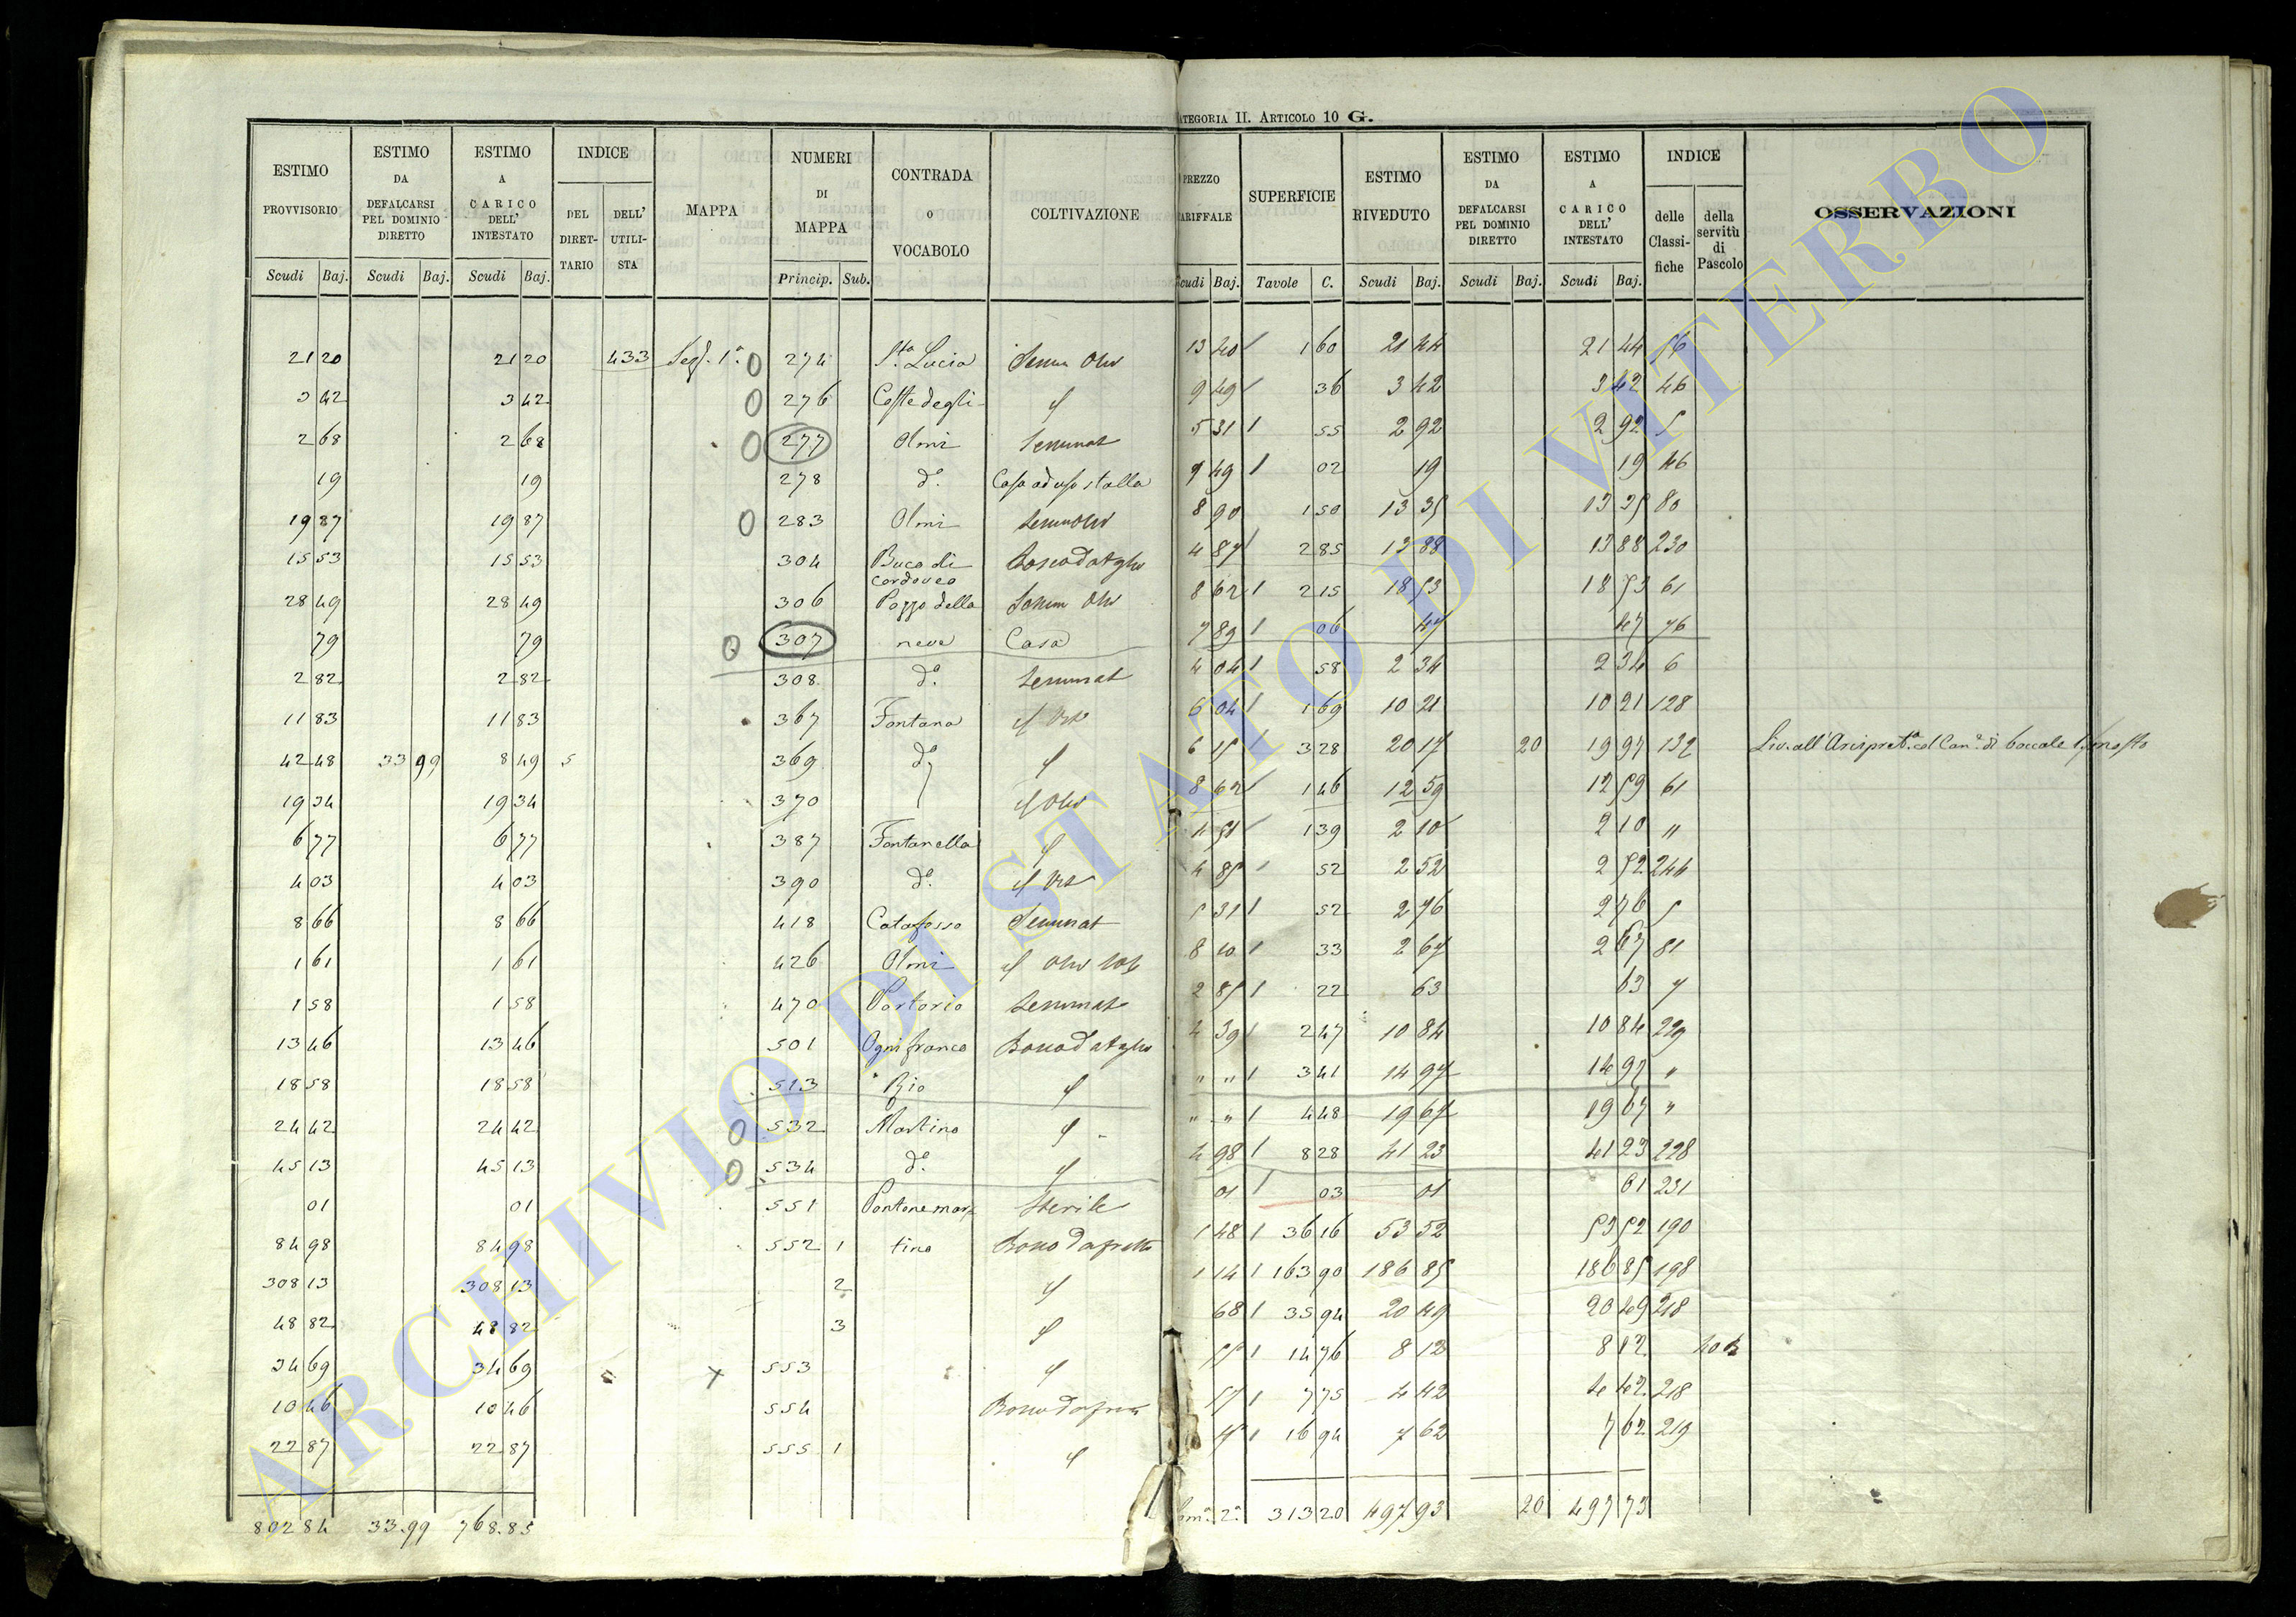 CATEGORIA II. ARTICOLO 10 G.
ESTIMO PROVVISORIO Scudi Baj. ESTIMO DA DEFALCARSI PEL DOMINIO DIRETTO Scudi Baj. ESTIMO A CARICO DELL' INTESTATO Scudi Baj. INDICE DEL DIRETTARIO DELL' UTILISTA MAPPA NUMERI DI MAPPA Princip. Sub. CONTRADA O VOCABOLO COLTIVAZIONE PREZZO TARIFFALE Scudi Baj. SUPERFICIE Tavole C. ESTIMO RIVEDUTO Scudi Baj. ESTIMO DA DEFALCARSI PEL DOMINIO DIRETTO Scudi Baj. ESTIMO A CARICO DELL' INTESTATO Scudi Baj. INDICE delle Classifiche della servitù di Pascolo OSSERVAZIONI
21 20 21 20 433 Sez. 1ª 0 274 Sta Lucia Semin Oliv 13 40 1 60 21 44 21 44 56
3 42 3 42 0 276 Coste degli 9 49 36 3 42 3 42 46
2 68 2 68 0 277 Olmi Seminat 5 31 55 2 92 2 92 5
19 19 278 d.o Casa ad uso stalla 9 49 02 19 19 46
19 87 19 87 0 283 Olmi SeminOliv 8 90 1 50 13 35 13 35 80
15 53 15 53 304 Buca di Cordoveo 4 87 2 85 13 88 13 88 230
28 49 28 49 306 Pozzo della Semin Oliv 8 62 2 15 18 53 18 53 61
79 79 0 307 neve Casa 7 89 06 47 47 76
2 82 2 82 308 d.o Seminat 4 04 58 2 34 2 34 6
11 83 11 83 367 Fontana 6 04 1 69 10 21 10 21 128
42 48 33 99 8 49 5 369 d.o 6 15 3 28 20 17 20 19 97 132 Liv. all' Arcipret.a col Can.e di boccale 1/2 mosto
19 34 19 34 370 8 62 1 46 12 59 12 59 61
6 77 6 77 387 Fontanella 1 51 1 39 2 10 2 10 "
4 03 4 03 390 d.o 4 85 52 2 52 2 52 244
8 66 8 66 418 Catafosso Seminat 5 31 52 2 76 2 76 5
1 61 1 61 426 Olmi 8 10 33 2 67 2 67 81
1 58 1 58 470 Portorio Seminat 2 85 22 63 63 7
13 46 13 46 501 Ognifranco 4 39 2 47 10 84 10 84 229
18 58 18 58 513 Rio " " 3 41 14 97 14 97 "
24 42 24 42 0 532 Martino " " 4 48 19 67 19 67 "
45 13 45 13 0 534 d.o 4 98 8 28 41 23 41 23 228
01 01 551 Pantane mar= Sterile 01 03 01 01 231
84 98 84 98 552 1 tino 1 48 36 16 53 52 53 52 190
308 13 308 13 2 1 14 163 90 186 85 186 85 198
48 82 48 82 3 68 35 94 20 49 20 49 218
34 69 34 69 x 553 55 14 76 8 12 8 12
10 46 10 46 554 57 7 75 4 42 4 42 218
22 87 22 87 555 1 16 94 7 62 7 62 219
802 84 33.99 768.85 313 20 497 93 20 497 73
ARCHIVIO DI STATO DI VITERBO